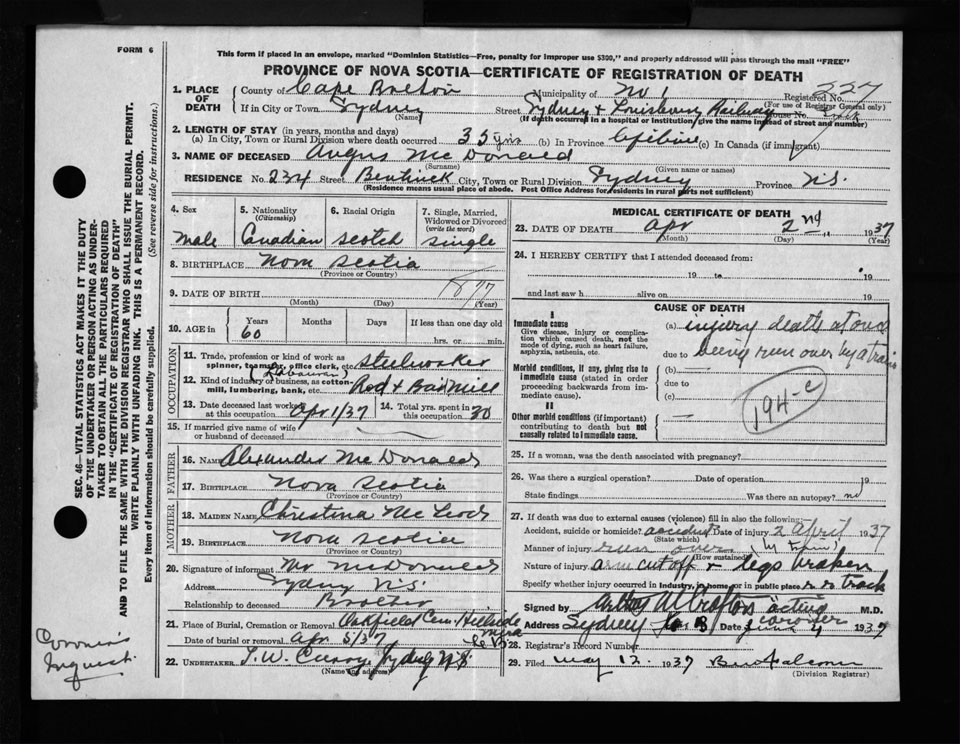 FORM 6
This form if placed in an envelope, marked "Dominion Statistics—Free, penalty for improper use $300," and properly addressed will pass through the mail "FREE"
PROVINCE OF NOVA SCOTIA—CERTIFICATE OF REGISTRATION OF DEATH
1. PLACE OF DEATH
County of Cape Breton Municipality of No 1 Registered No. 227
(For use of Registrar General only)
If in City or Town Sydney Street Sydney & Louisburg Railway House No.
(Name) (If death occurred in a hospital or institution, give the name instead of street and number)
2. LENGTH OF STAY (in years, months and days)
(a) In City, Town or Rural Division where death occurred 35 yrs (b) In Province Lifetime (c) In Canada (if immigrant)
3. NAME OF DECEASED Angus McDonald
(Surname) (Given name or names)
RESIDENCE No. 234 Street Bentinck City, Town or Rural Division Sydney Province N.S.
(Residence means usual place of abode. Post Office Address for residents in rural parts not sufficient)
4. Sex
male
5. Nationality
(Citizenship)
Canadian
6. Racial Origin
Scotch
7. Single, Married, Widowed or Divorced
(write the word)
single
8. BIRTHPLACE Nova Scotia
(Province or Country)
9. DATE OF BIRTH 1877
(Month) (Day) (Year)
10. AGE in
Years Months Days If less than one day old
60 hrs. or min.
OCCUPATION
11. Trade, profession or kind of work as spinner, teamster, office clerk, etc. steelworker
(Labourer)
12. Kind of industry or business, as cotton-mill, lumbering, bank, etc. Rod & Bar Mill
13. Date deceased last worked at this occupation Apr 1/37
14. Total yrs. spent in this occupation 30
15. If married give name of wife or husband of deceased
FATHER
16. NAME Alexander McDonald
17. BIRTHPLACE Nova Scotia
(Province or Country)
MOTHER
18. MAIDEN NAME Christina McLeod
19. BIRTHPLACE Nova Scotia
(Province or Country)
20. Signature of informant McDonald
Address Sydney N.S.
Relationship to deceased Brother
21. Place of Burial, Cremation or Removal Oakfield Cem. Hillside Mira C.B.
Date of burial or removal Apr 5/37
22. UNDERTAKER T.W. Curry Sydney N.S.
(Name and address)
MEDICAL CERTIFICATE OF DEATH
23. DATE OF DEATH Apr 2nd 1937
(Month) (Day) (Year)
24. I HEREBY CERTIFY that I attended deceased from:
19 to 19
and last saw h alive on 19
CAUSE OF DEATH
I
Immediate cause
Give disease, injury or complication which caused death, not the mode of dying, such as heart failure, asphyxia, asthenia, etc.
(a) injury death at once
due to being run over by a train
Morbid conditions, if any, giving rise to immediate cause (stated in order proceeding backwards from immediate cause).
(b)
due to
(c)
194-c
II
Other morbid conditions (if important) contributing to death but not causally related to immediate cause.
25. If a woman, was the death associated with pregnancy?
26. Was there a surgical operation? Date of operation 19
State findings Was there an autopsy? no
27. If death was due to external causes (violence) fill in also the following:
Accident, suicide or homicide? accident Date of injury 2 April 1937
(State which)
Manner of injury run over (by train)
(How sustained)
Nature of injury arm cut off & legs broken
Specify whether injury occurred in industry, in home, or in public place R R track
Signed by acting coroner M.D.
Address Sydney C B Date June 4 1937
28. Registrar's Record Number
29. Filed May 12 1937
(Division Registrar)
SEC. 46—VITAL STATISTICS ACT MAKES IT THE DUTY OF THE UNDERTAKER OR PERSON ACTING AS UNDERTAKER TO OBTAIN ALL THE PARTICULARS REQUIRED IN THE "CERTIFICATE OF REGISTRATION OF DEATH" AND TO FILE THE SAME WITH THE DIVISION REGISTRAR WHO SHALL ISSUE THE BURIAL PERMIT.
WRITE PLAINLY WITH UNFADING INK. THIS IS A PERMANENT RECORD.
Every item of information should be carefully supplied. (See reverse side for instructions.)
Coroner's
Inquest